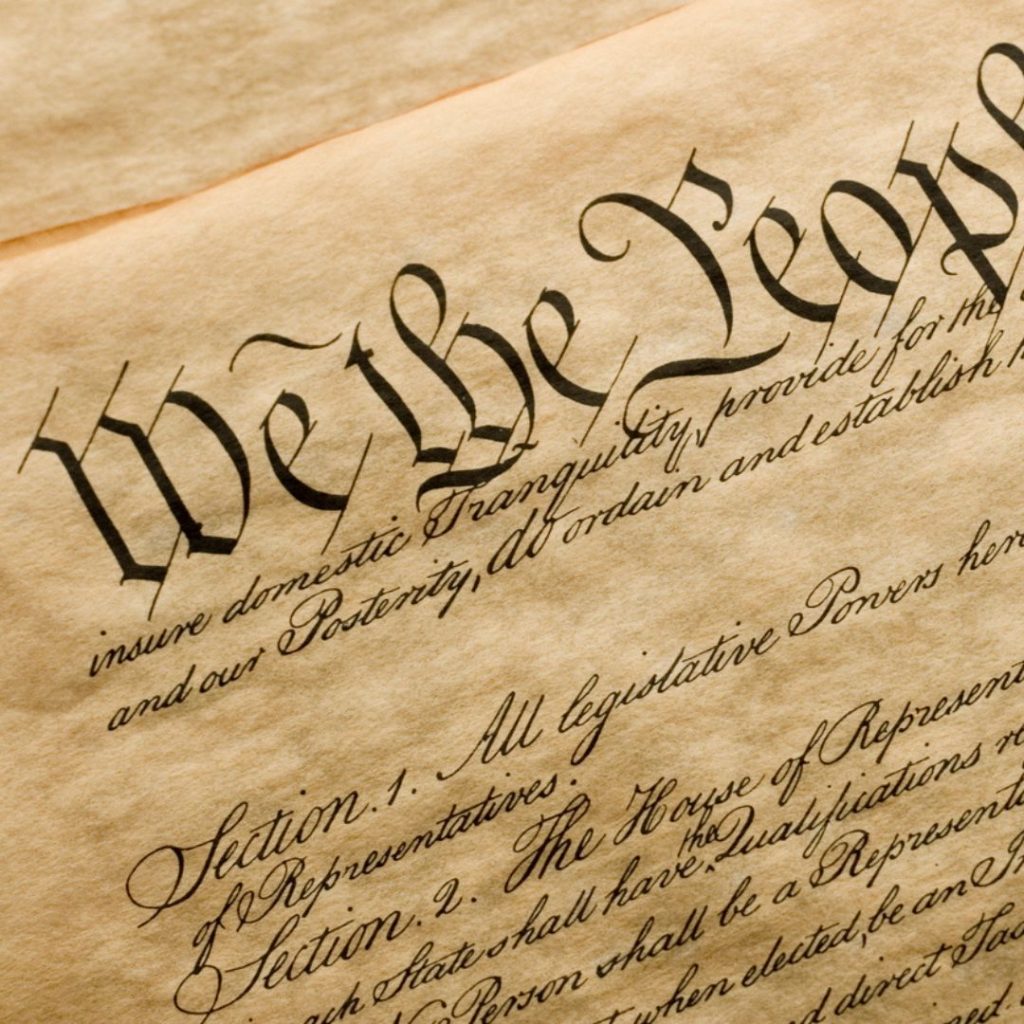 We the Peopl
insure domestic Tranquility, provide for the
and our Posterity, do ordain and establish
Section. 1. All legislative Powers here
of Representatives.
Section. 2. The House of Represent
the
ach State shall have Qualifications re
Person shall be a Representa
when elected, be an In
d direct Tax